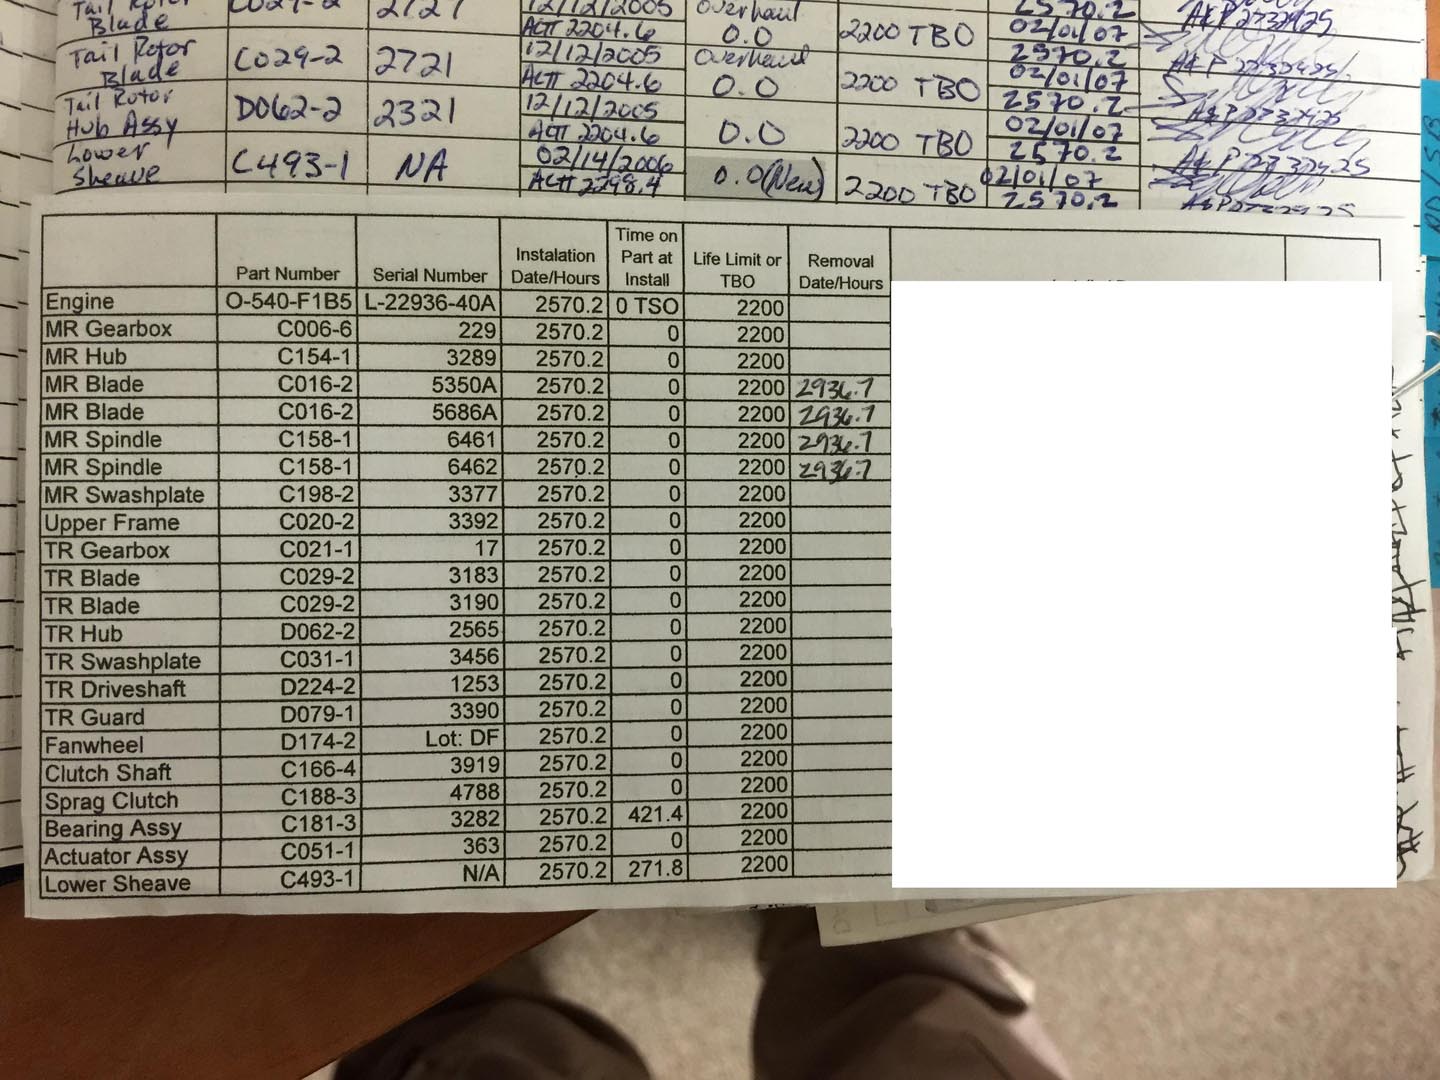 Tail Rotor Blade C029-2 2721 12/12/2005 ACTT 2204.6 Overhaul 0.0 2200 TBO 2570.2
Tail Rotor Blade C029-2 2721 12/12/2005 ACTT 2204.6 Overhaul 0.0 2200 TBO 02/01/07 2570.2 A&P 2732425
Tail Rotor Hub Assy D062-2 2321 12/12/2005 ACTT 2204.6 0.0 2200 TBO 02/01/07 2570.2 A&P 2732425
Lower Sheave C493-1 NA 02/14/2006 ACTT 2298.4 0.0 (New) 2200 TBO 02/01/07 2570.2 A&P 2732425
Part Number Serial Number Instalation Date/Hours Time on Part at Install Life Limit or TBO Removal Date/Hours
Engine O-540-F1B5 L-22936-40A 2570.2 0 TSO 2200
MR Gearbox C006-6 229 2570.2 0 2200
MR Hub C154-1 3289 2570.2 0 2200
MR Blade C016-2 5350A 2570.2 0 2200 2936.7
MR Blade C016-2 5686A 2570.2 0 2200 2936.7
MR Spindle C158-1 6461 2570.2 0 2200 2936.7
MR Spindle C158-1 6462 2570.2 0 2200 2936.7
MR Swashplate C198-2 3377 2570.2 0 2200
Upper Frame C020-2 3392 2570.2 0 2200
TR Gearbox C021-1 17 2570.2 0 2200
TR Blade C029-2 3183 2570.2 0 2200
TR Blade C029-2 3190 2570.2 0 2200
TR Hub D062-2 2565 2570.2 0 2200
TR Swashplate C031-1 3456 2570.2 0 2200
TR Driveshaft D224-2 1253 2570.2 0 2200
TR Guard D079-1 3390 2570.2 0 2200
Fanwheel D174-2 Lot: DF 2570.2 0 2200
Clutch Shaft C166-4 3919 2570.2 0 2200
Sprag Clutch C188-3 4788 2570.2 0 2200
Bearing Assy C181-3 3282 2570.2 421.4 2200
Actuator Assy C051-1 363 2570.2 0 2200
Lower Sheave C493-1 N/A 2570.2 271.8 2200